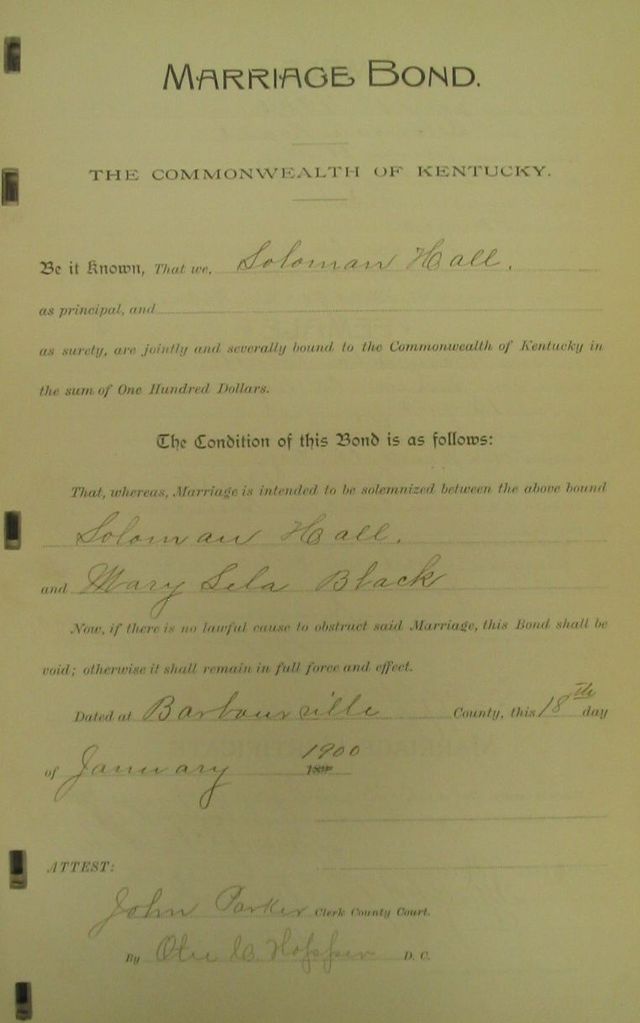 MARRIAGE BOND.
THE COMMONWEALTH OF KENTUCKY.
Be it Known, That we, Soloman Hall.
as principal, and
as surety, are jointly and severally bound to the Commonwealth of Kentucky in
the sum of One Hundred Dollars.
The Condition of this Bond is as follows:
That, whereas, Marriage is intended to be solemnized between the above bound
Soloman Hall.
and Mary Lela Black
Now, if there is no lawful cause to obstruct said Marriage, this Bond shall be
void; otherwise it shall remain in full force and effect.
Dated at Barbourville County, this 18th day
of January 1900
ATTEST:
John Parker Clerk County Court.
By D. C.